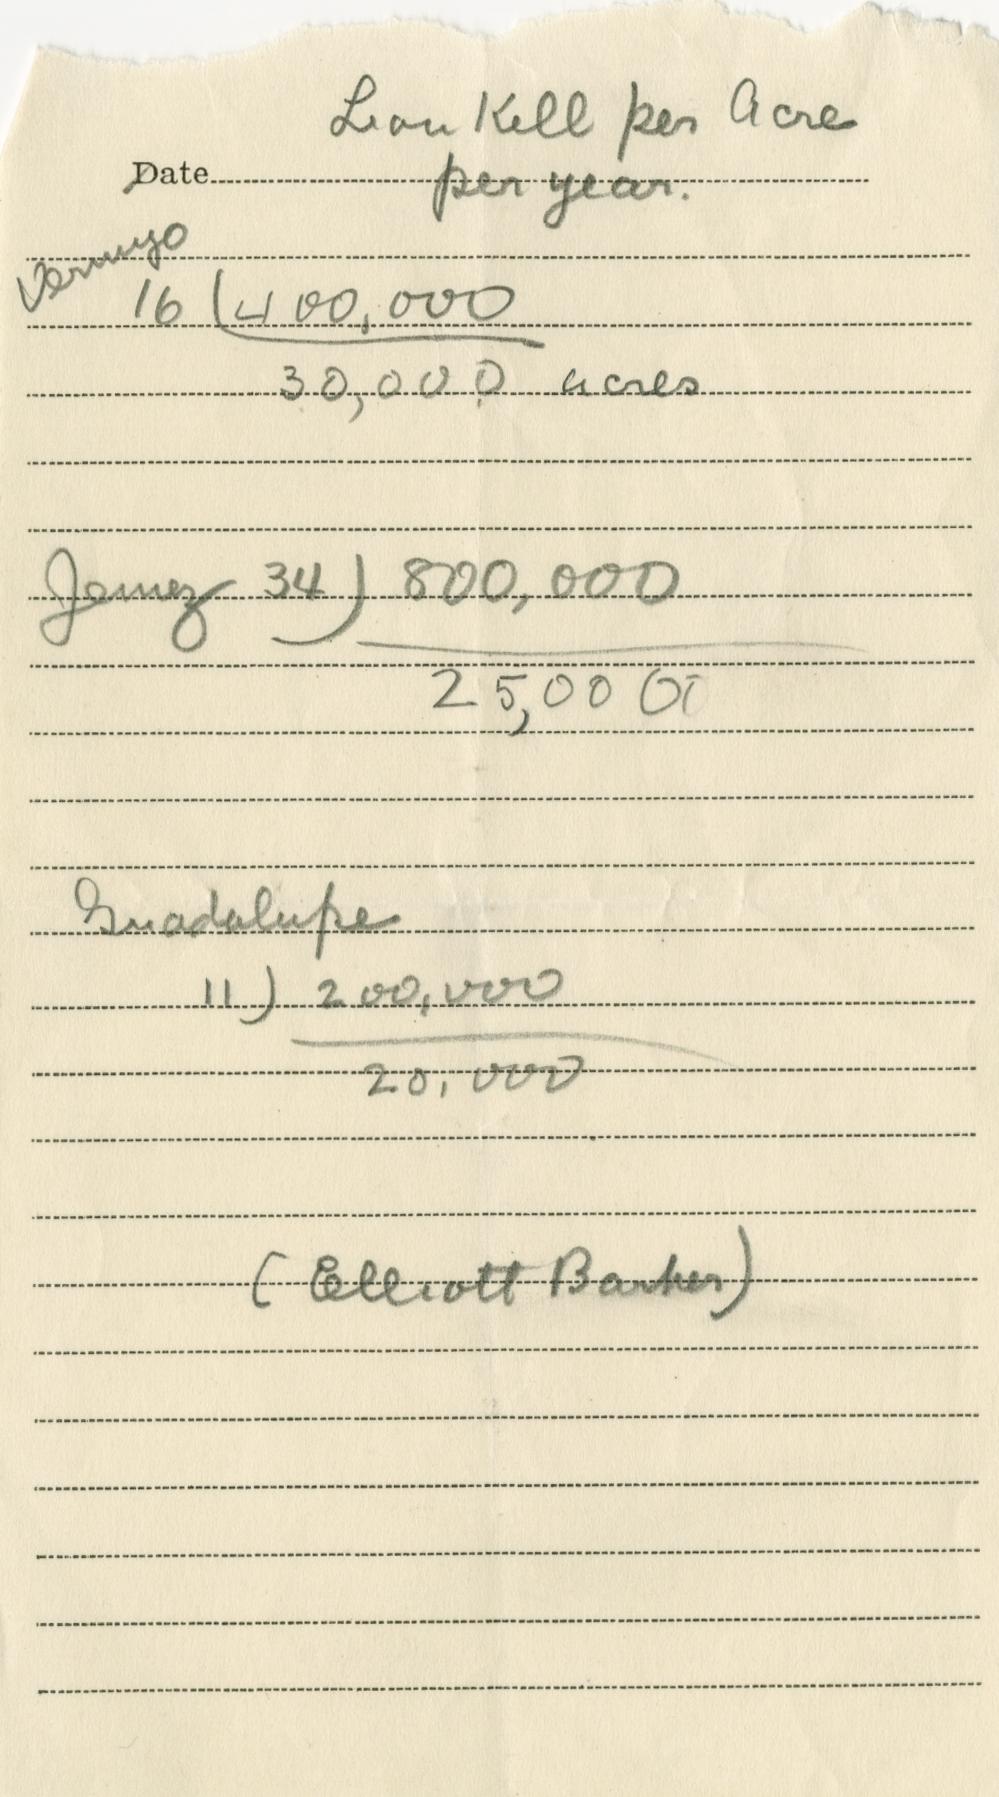 Lion Kill per Acre
Date
per year.
Vermejo
16 400,000
30,000 acres
Jemez 34 ) 800,000
25,000
Guadalupe
11 ) 200,000
20,000
( Elliott Barker )